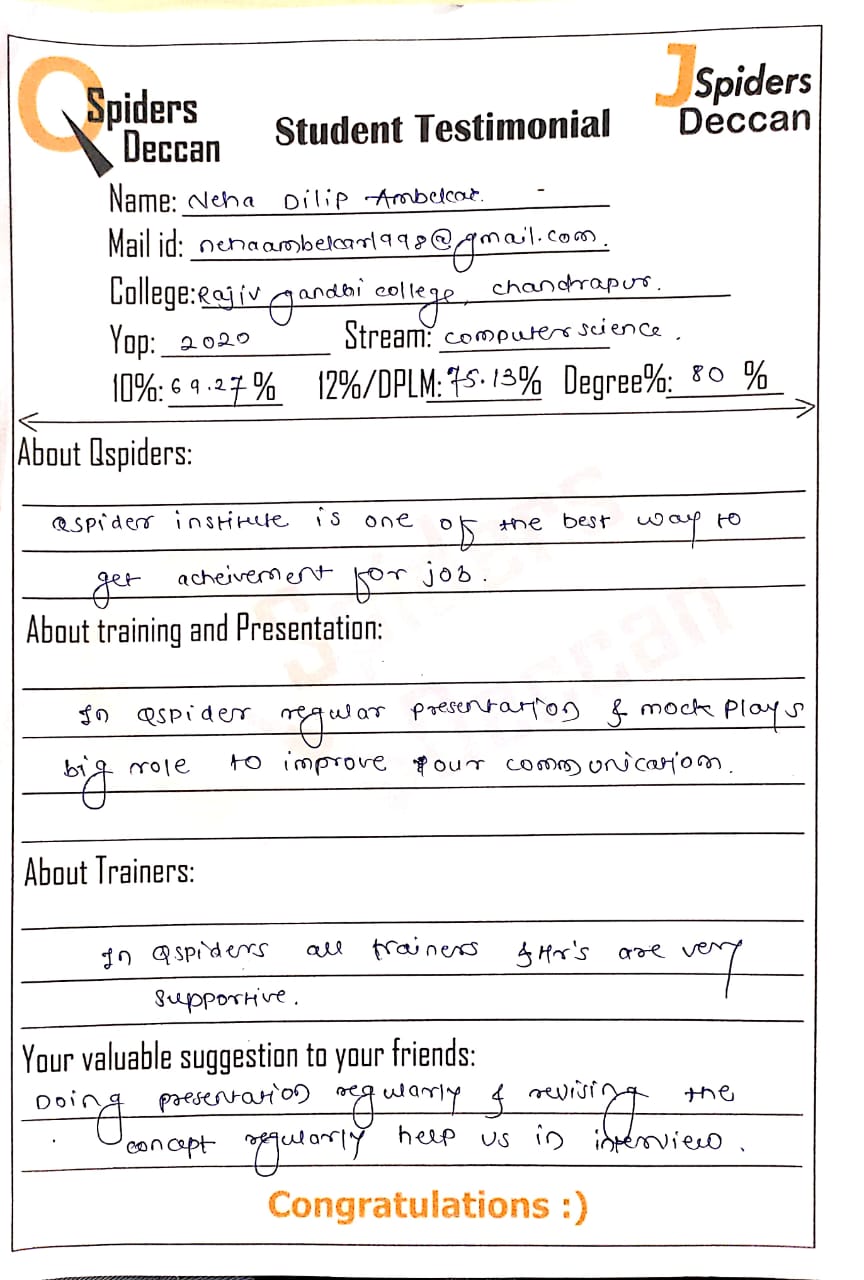 QSpiders
Deccan
JSpiders
Deccan
Student Testimonial
Name: Neha Dilip Ambekar.
Mail id: nehaambekar1998@gmail.com.
College: Rajiv gandhi college, chandrapur.
Yop: 2020 Stream: computer science.
10%: 69.27% 12%/DPLM: 75.13% Degree%: 80 %
About Qspiders:
Qspider institute is one of the best way to
get acheivement for job.
About training and Presentation:
In Qspider regular presentation & mock plays
big role to improve your communication.
About Trainers:
In Qspiders all trainers & Hr's are very
supportive.
Your valuable suggestion to your friends:
Doing presentation regularly & revising the
concept regularly help us in interview.
Congratulations :)